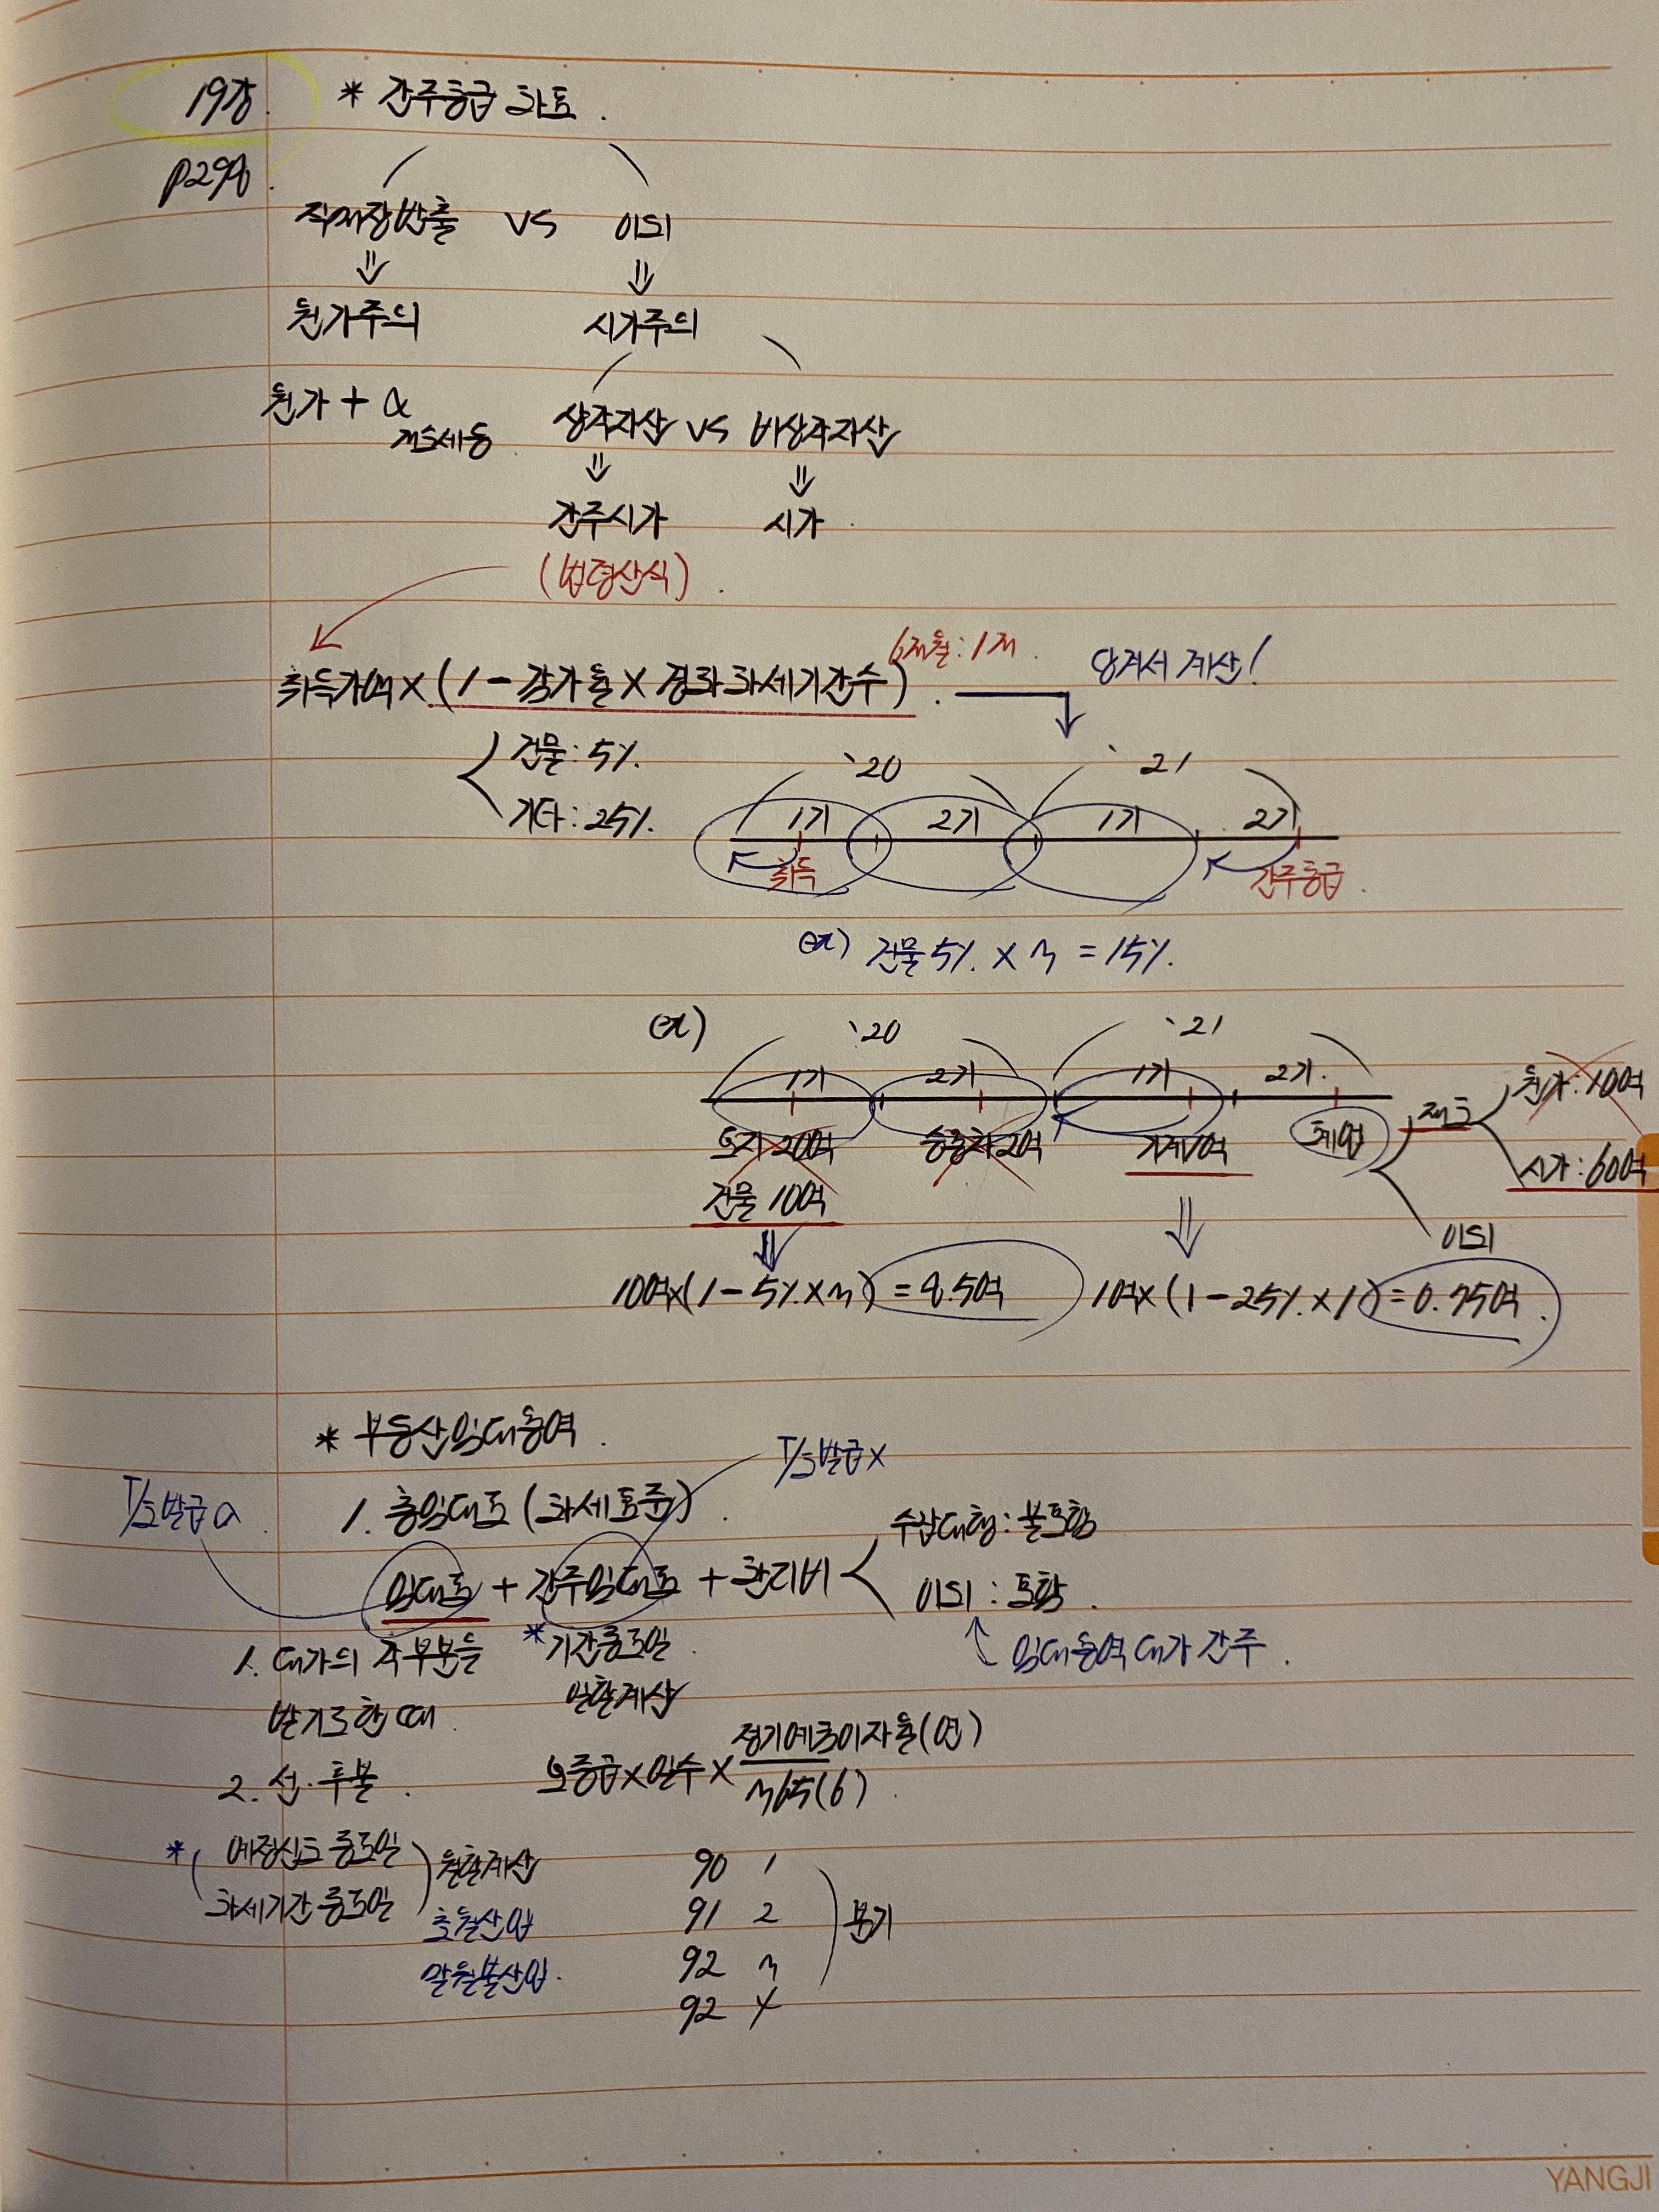 19강. * 간주공급 과표.
p298.
직매장반출 vs 이외
⇓ ⇓
원가주의 시가주의
원가 + α 개소세등. 상각자산 vs 비상각자산
⇓ ⇓
간주시가 시가.
(법령산식).
6개월: 1개.
취득가액 × (1 - 감가율 × 경과과세기간수). 당겨서 계산!
건물: 5%. `20 `21
기타: 25%. 1기 2기 1기 2기
취득 간주공급.
ex) 건물 5%. × 3 = 15%.
ex) `20 `21
1기 2기 1기 2기.
토지 200억 승용차 2억 기계 1억 폐업 재고 원가: 10억
건물 10억 시가: 60억
⇓ ⇓ 이외
10억×(1-5%.×3) = 8.5억 1억×(1-25%.×1) = 0.75억.
* 부동산임대용역.
T/I발급 o. T/I발급 x
1. 총임대료 (과세표준).
임대료 + 간주임대료 + 관리비 수납대행: 불포함
이외: 포함.
임대용역 대가 간주.
1. 대가의 각 부분을 * 기간종료일.
받기로 한 때. 일할계산
2. 선·후불. 보증금×일수× 정기예금이자율(연)
365(6).
* (예정신고 종료일 과세기간 종료일) 월할계산
초월산입
말월불산입.
90 1
91 2 분기
92 3
92 4
YANGJI